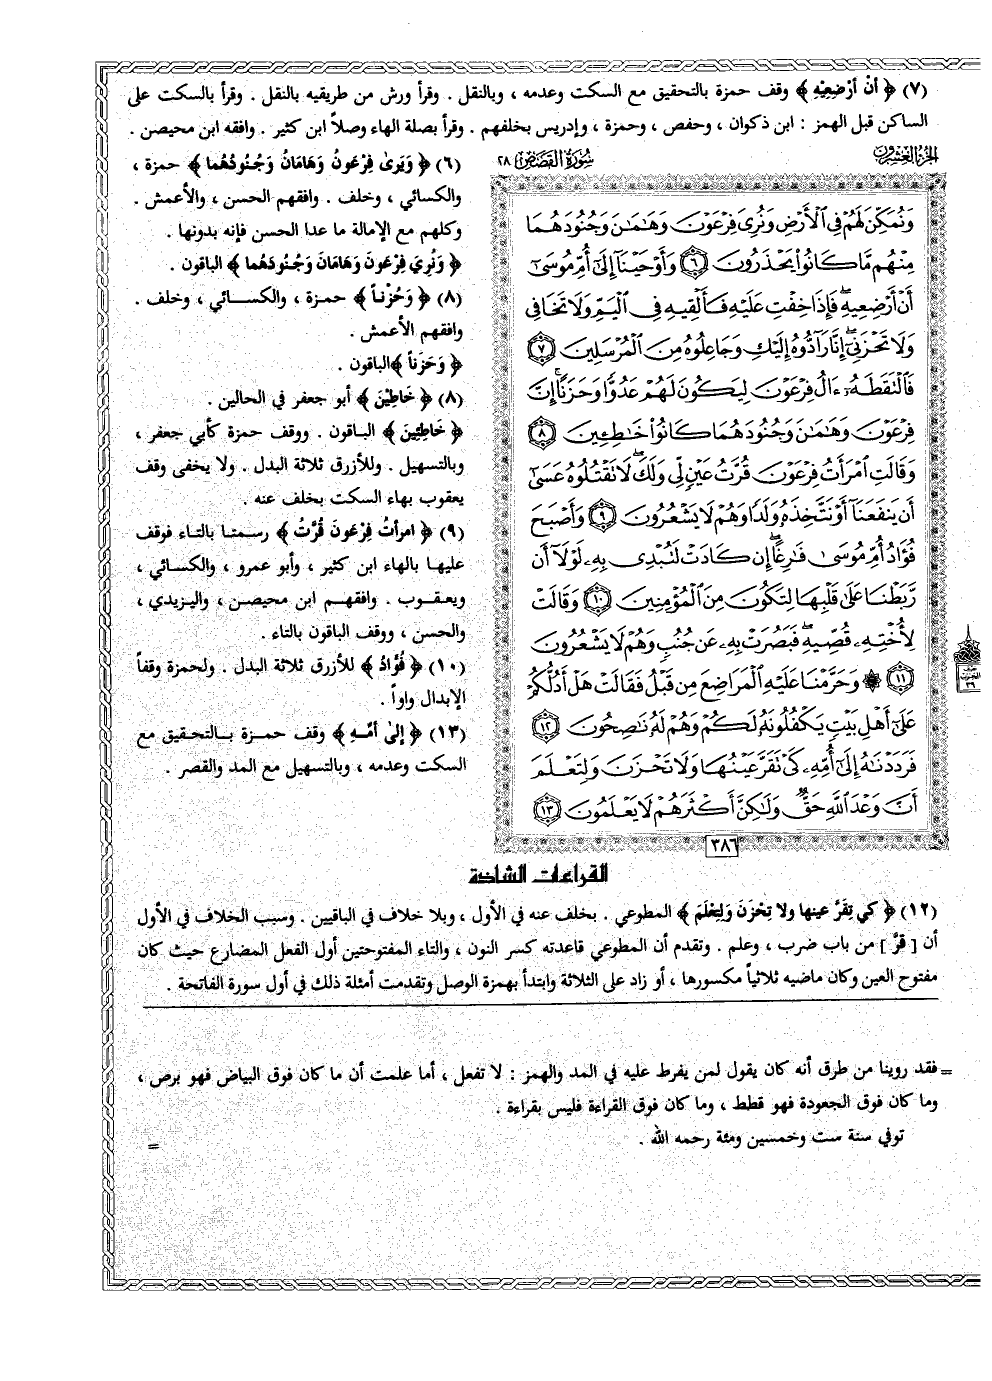 (٧) ﴿ أَنْ أَرْضِعِيْهِ ﴾ وقف حمزة بالتحقيق مع السكت وعدمه ، وبالنقل . وقرأ ورش من طريقيه بالنقل . وقرأ بالسكت على
الساكن قبل الهمز : ابن ذكوان ، وحفص ، وحمزة ، وإدريس بخلفهم . وقرأ بصلة الهاء وصلاً ابن كثير . وافقه ابن محيصن .
الجزء العشرون
سورة القصص ٢٨
وَنُمَكِّنَ لَهُمْ فِي الْأَرْضِ وَنُرِيَ فِرْعَوْنَ وَهَٰمَٰنَ وَجُنُودَهُمَا
مِنْهُم مَّا كَانُوا يَحْذَرُونَ ٦ وَأَوْحَيْنَا إِلَىٰ أُمِّ مُوسَىٰ
أَنْ أَرْضِعِيهِ ۖ فَإِذَا خِفْتِ عَلَيْهِ فَأَلْقِيهِ فِي الْيَمِّ وَلَا تَخَافِي
وَلَا تَحْزَنِي ۖ إِنَّا رَادُّوهُ إِلَيْكِ وَجَاعِلُوهُ مِنَ الْمُرْسَلِينَ ٧
فَالْتَقَطَهُۥ ءَالُ فِرْعَوْنَ لِيَكُونَ لَهُمْ عَدُوًّا وَحَزَنًا ۗ إِنَّ
فِرْعَوْنَ وَهَٰمَٰنَ وَجُنُودَهُمَا كَانُوا خَٰطِـِٔينَ ٨
وَقَالَتِ امْرَأَتُ فِرْعَوْنَ قُرَّتُ عَيْنٍ لِّي وَلَكَ ۖ لَا تَقْتُلُوهُ عَسَىٰ
أَن يَنفَعَنَا أَوْ نَتَّخِذَهُۥ وَلَدًا وَهُمْ لَا يَشْعُرُونَ ٩ وَأَصْبَحَ
فُؤَادُ أُمِّ مُوسَىٰ فَٰرِغًا ۖ إِن كَادَتْ لَتُبْدِي بِهِۦ لَوْلَا أَن
رَّبَطْنَا عَلَىٰ قَلْبِهَا لِتَكُونَ مِنَ الْمُؤْمِنِينَ ١٠ وَقَالَتْ
لِأُخْتِهِۦ قُصِّيهِ ۖ فَبَصُرَتْ بِهِۦ عَن جُنُبٍ وَهُمْ لَا يَشْعُرُونَ
١١ ۞ وَحَرَّمْنَا عَلَيْهِ الْمَرَاضِعَ مِن قَبْلُ فَقَالَتْ هَلْ أَدُلُّكُمْ
عَلَىٰ أَهْلِ بَيْتٍ يَكْفُلُونَهُۥ لَكُمْ وَهُمْ لَهُۥ نَٰصِحُونَ ١٢
فَرَدَدْنَٰهُ إِلَىٰ أُمِّهِۦ كَيْ تَقَرَّ عَيْنُهَا وَلَا تَحْزَنَ وَلِتَعْلَمَ
أَنَّ وَعْدَ اللَّهِ حَقٌّ وَلَٰكِنَّ أَكْثَرَهُمْ لَا يَعْلَمُونَ ١٣
٣٨٦
(٦) ﴿ وَيَرىٰ فِرْعَونُ وَهَامَانُ وَجُنُودُهُما ﴾ حمزة ،
والكسائي ، وخلف . وافقهم الحسن ، والأعمش .
وكلهم مع الإمالة ما عدا الحسن فإنه بدونها .
﴿ وَنُرِيَ فِرْعَونَ وَهَامَانَ وَجُنُودَهُما ﴾ الباقون .
(٨) ﴿ وَحُزْناً ﴾ حمزة ، والكسائي ، وخلف .
وافقهم الأعمش .
﴿ وَحَزَناً ﴾ الباقون .
(٨) ﴿ خَاطِيْنَ ﴾ أبو جعفر في الحالين .
﴿ خَاطِئِينَ ﴾ الباقون . ووقف حمزة كأبي جعفر ،
وبالتسهيل . وللأزرق ثلاثة البدل . ولا يخفى وقف
يعقوب بهاء السكت بخلف عنه .
(٩) ﴿ امرأتُ فِرْعَونَ قُرَّتُ ﴾ رسمتا بالتاء فوقف
عليها بالهاء ابن كثير ، وأبو عمرو ، والكسائي ،
ويعقوب . وافقهم ابن محيصن ، واليزيدي ،
والحسن ، ووقف الباقون بالتاء .
(١٠) ﴿ فُؤَادُ ﴾ للأزرق ثلاثة البدل . ولحمزة وقفاً
الإبدال واواً .
(١٣) ﴿ إلىٰ أُمِّهِ ﴾ وقف حمزة بالتحقيق مع
السكت وعدمه ، وبالتسهيل مع المد والقصر .
القراءات الشاذة
(١٢) ﴿ كي تِقَرَّ عينها ولا تِحْزَنَ وَلِتِعْلَمَ ﴾ المطوعي . بخلف عنه في الأول ، وبلا خلاف في الباقيين . وسبب الخلاف في الأول
أن [ قرَّ ] من باب ضرب ، وعلم . وتقدم أن المطوعي قاعدته كسر النون ، والتاء المفتوحتين أول الفعل المضارع حيث كان
مفتوح العين وكان ماضيه ثلاثياً مكسورها ، أو زاد على الثلاثة وابتدأ بهمزة الوصل وتقدمت أمثلة ذلك في أول سورة الفاتحة .
= فقد روينا من طرق أنه كان يقول لمن يفرط عليه في المد والهمز : لا تفعل ، أما علمت أن ما كان فوق البياض فهو برص ،
وما كان فوق الجعودة فهو قطط ، وما كان فوق القراءة فليس بقراءة .
توفي سنة ست وخمسين ومئة رحمه الله .
=